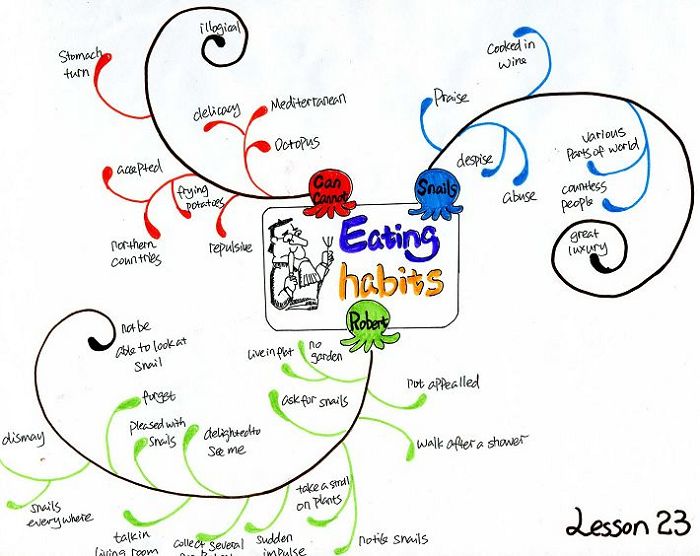 illogical
Stomach
turn
delicacy
Mediterranean
Octopus
accepted
frying
potatoes
northern
countries
repulsive
Can
Cannot
Cooked in
wine
Praise
despise
abuse
various
Parts of world
countless
people
great
luxury
Snails
Eating
habits
Robert
not be
able to look at
Snail
forget
dismay
pleased with
Snails
delighted to
see me
snails
everywhere
talk in
living room
collect several
sudden
impulse
take a stroll
on plants
notice snails
live in flat
no
garden
ask for snails
not appealled
walk after a shower
Lesson 23